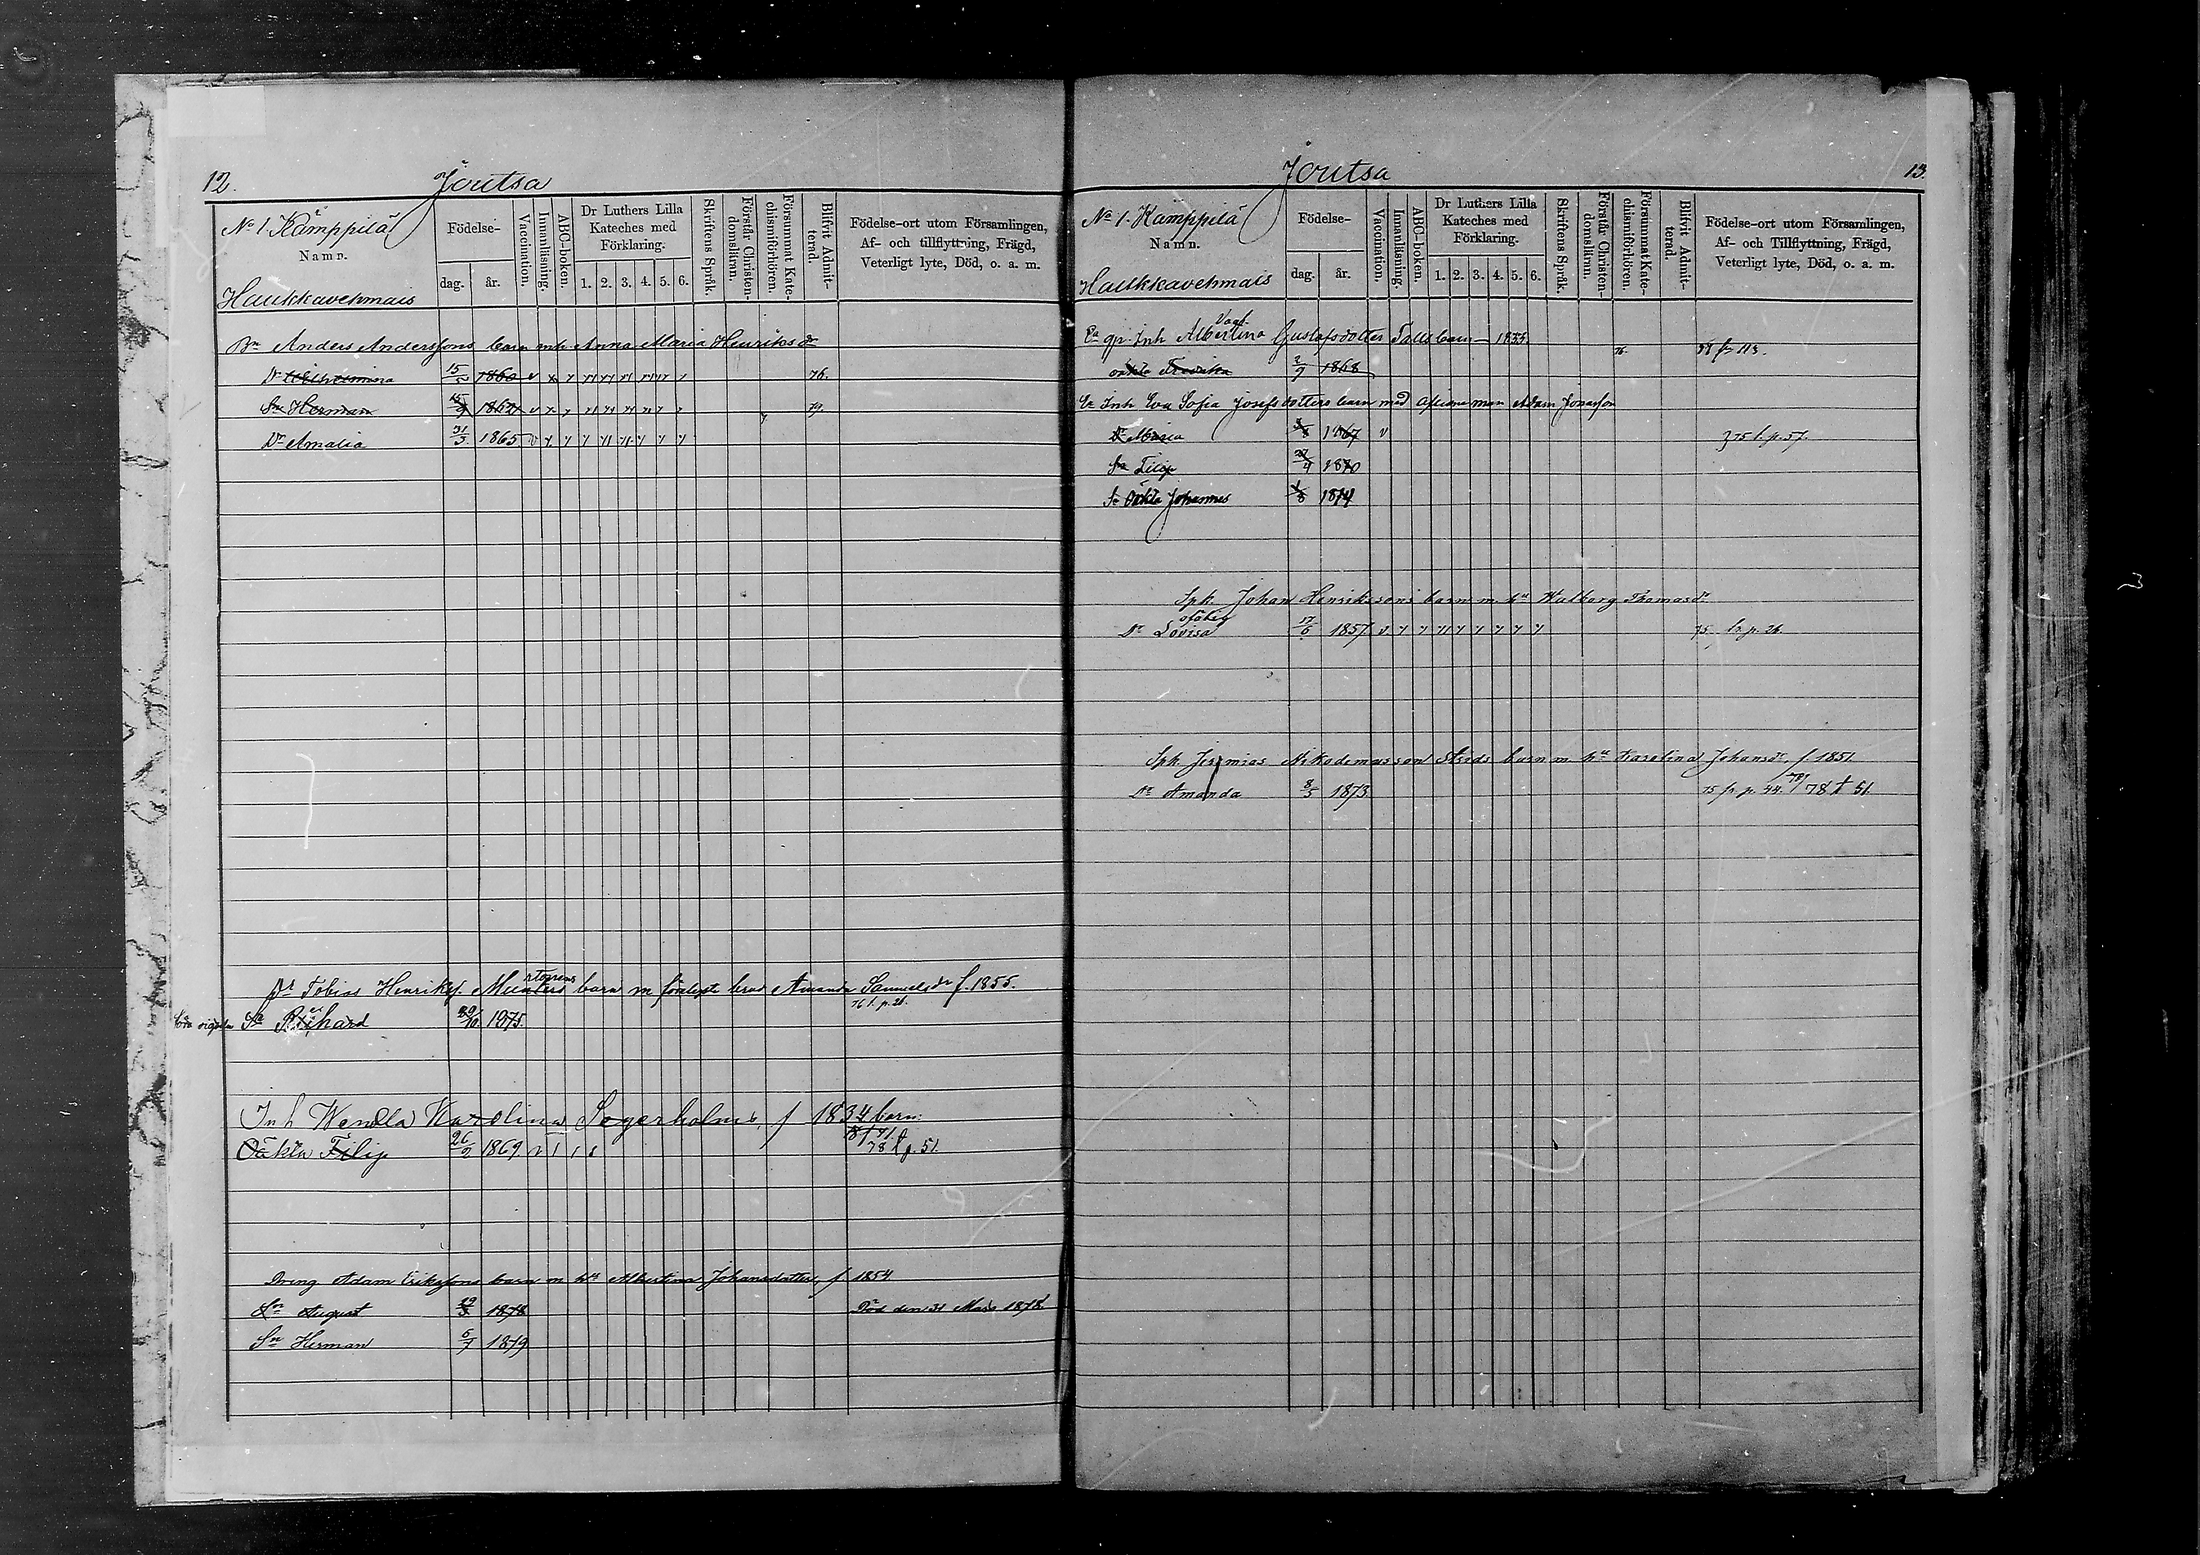 12.
Joutsa
No 1 Kämppilä
Namn.
Haukkavehmais
Födelse-
dag.
år.
Vaccination.
Innanläsning.
ABC-boken.
Dr Luthers Lilla
Kateches med
Förklaring.
1. 2. 3. 4. 5. 6.
Skriftens Språk.
Förstår Christen-
domsläran.
Försummat Kate-
chismiförhören.
Blifvit Admit-
terad.
Födelse-ort utom Församlingen,
Af- och tillflyttning, Frägd,
Veterligt lyte, Död, o. a. m.
Anders Anderssons barn mh Anna Maria Henriks dr
Dr Wilhelmina 15/5 1860 76.
Sn Herman 1862 79.
Dr Amalia 31/3 1865
Tobias Henrikss. barn m Amanda Samuelsdr f. 1855.
76 t. p. 26.
Sn Richard 29/10 1875.
Inh Wendla Karolina Segerholms, f 1834 barn:
Oäkta Filip 26/9 1869. 78 p. 51.
Dreng Adam Erikssons barn m hu Albertina Johansdotter, f 1854
Sn August 29/3 1878 Död den 31 Mars 1878
Sn Herman 6/7 1879
Joutsa
13.
No 1. Kämppilä
Namn.
Haukkavehmais
Födelse-
dag.
år.
Vaccination.
Innanläsning.
ABC-boken.
Dr Luthers Lilla
Kateches med
Förklaring.
1. 2. 3. 4. 5. 6.
Skriftens Språk.
Förstår Christen-
domsläran.
Försummat Kate-
chismiförhören.
Blifvit Admit-
terad.
Födelse-ort utom Församlingen,
Af- och Tillflyttning, Frägd,
Veterligt lyte, Död, o. a. m.
Inh Albertina Gustafsdotter Talls barn - 1835.
oäkta Fredrika 2/9 1868 76. p 113.
Inh Eva Sofia Josefsdotters barn med afsidna man Adam Jonasson
Dr Maria 1867 75 t. p. 57.
Sn Filip 27/4 1870
Sn Oäkta Johannes 1/8 1874
Sph. Johan Henrikssons barn m. hu Walborg Thomasdr
Dr Lovisa 17/6 1857 75 fr p. 26.
Sph. Jeremias Nikodemusson Strids barn m hu Karolina Johansdr, f. 1851
Dr Amanda 8/5 1873 75 fr p. 44. 78 t 51.